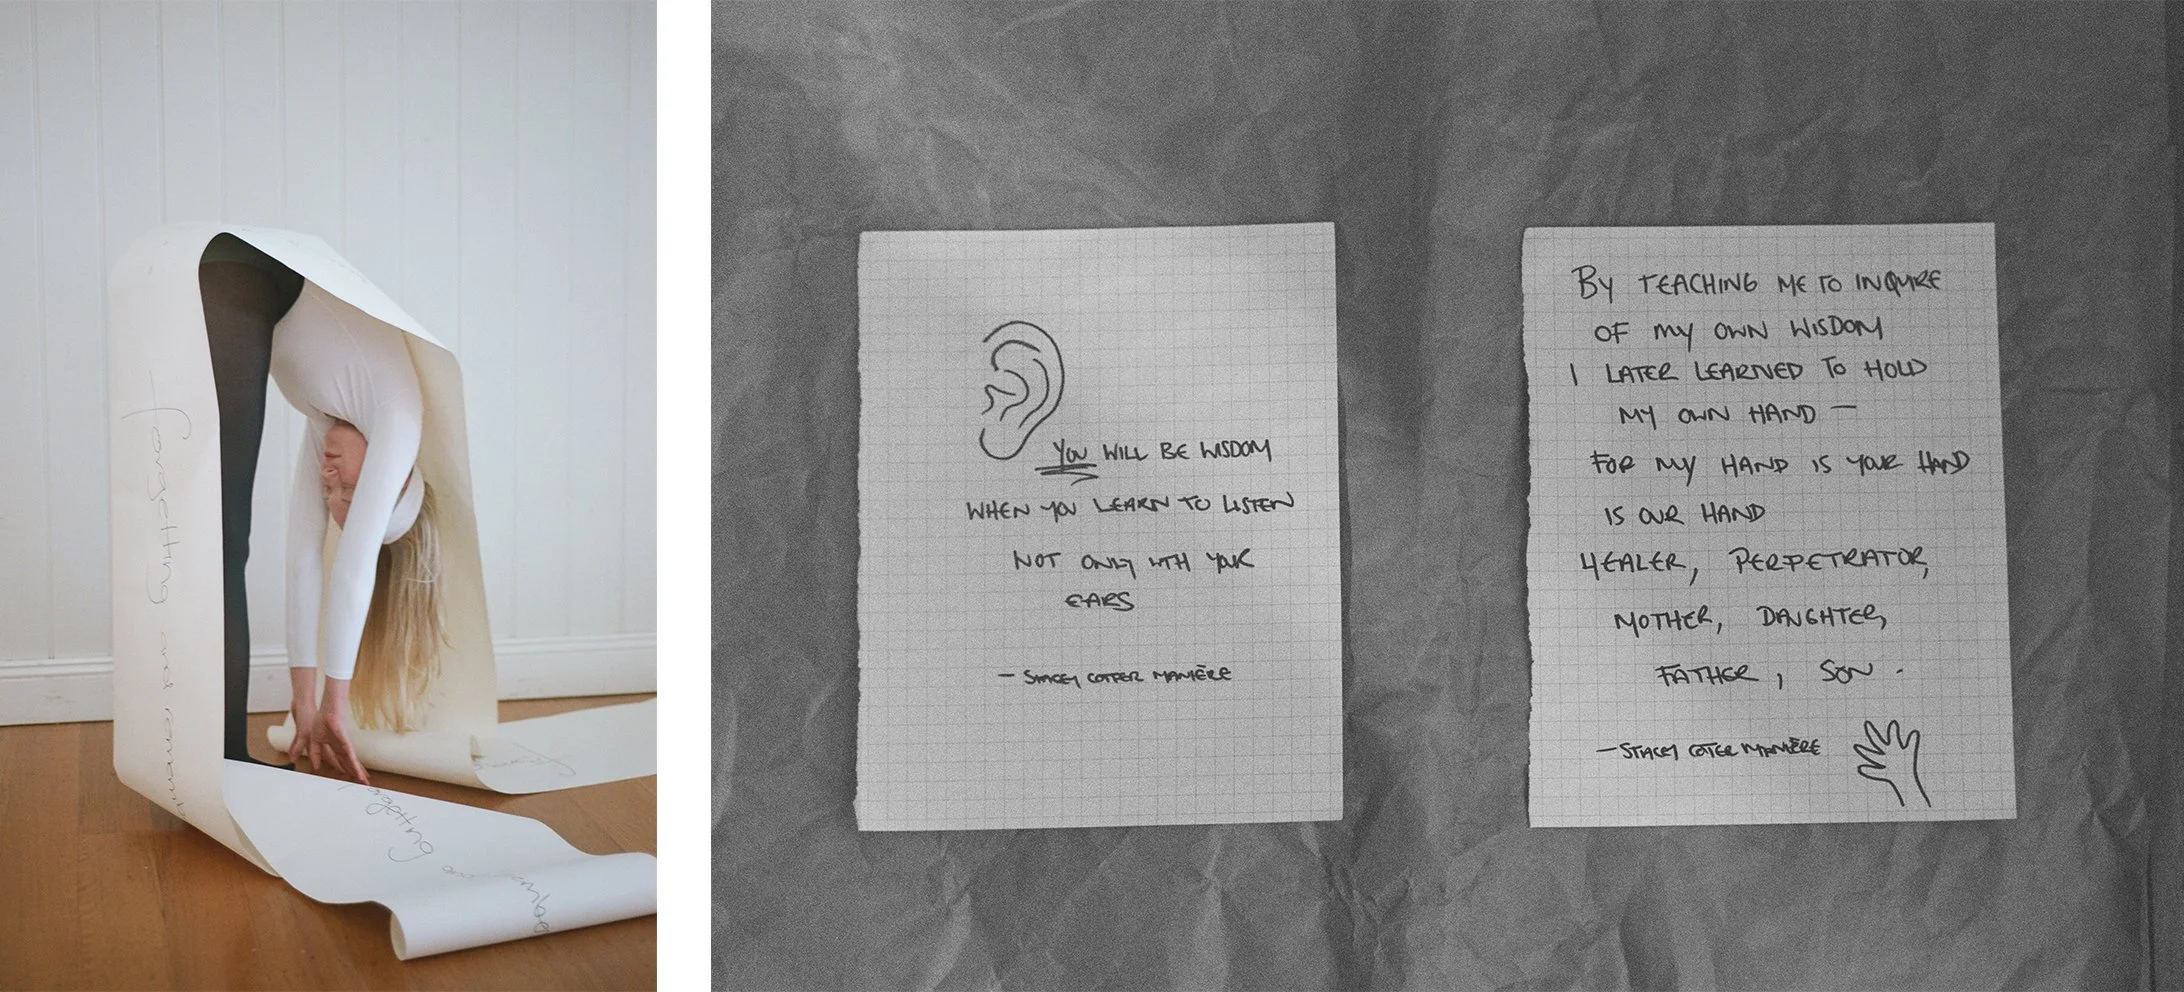 forgetting and remem
forgetting and
YOU WILL BE WISDOM
WHEN YOU LEARN TO LISTEN
NOT ONLY WITH YOUR
EARS
— STACEY COTTER MANIÈRE
BY TEACHING ME TO INQUIRE
OF MY OWN WISDOM
I LATER LEARNED TO HOLD
MY OWN HAND —
FOR MY HAND IS YOUR HAND
IS OUR HAND
HEALER, PERPETRATOR,
MOTHER, DAUGHTER,
FATHER, SON.
— STACEY COTTER MANIÈRE